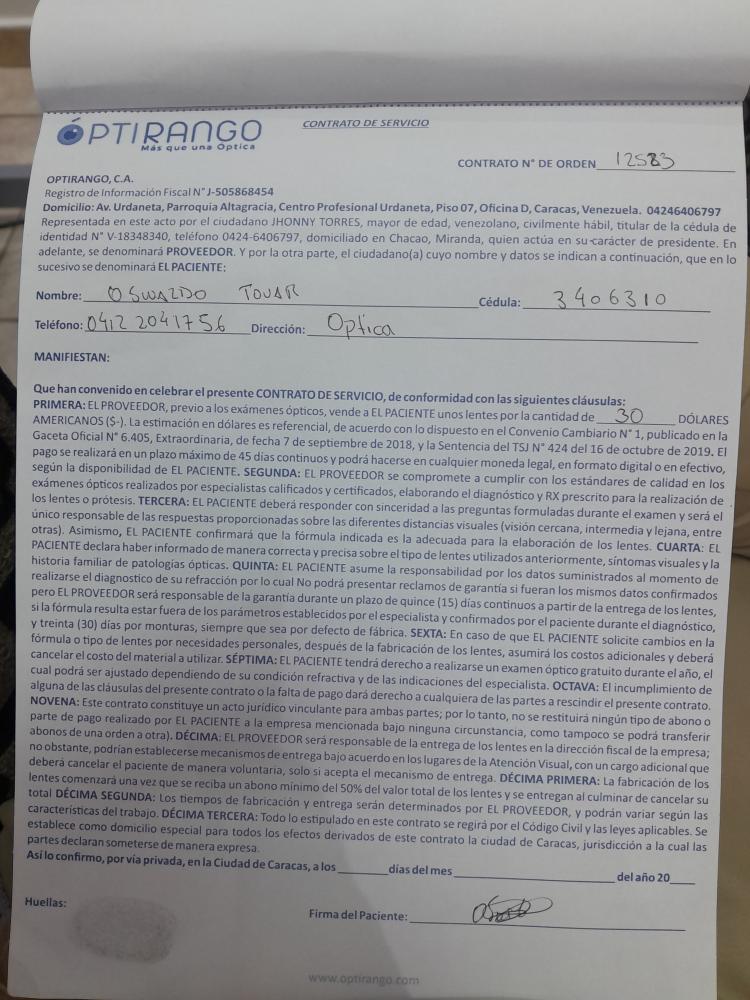 ÓPTIRANGO
Más que una Optica
CONTRATO DE SERVICIO
CONTRATO N° DE ORDEN 12583
OPTIRANGO, C.A.
Registro de Información Fiscal N° J-505868454
Domicilio: Av. Urdaneta, Parroquia Altagracia, Centro Profesional Urdaneta, Piso 07, Oficina D, Caracas, Venezuela. 04246406797
Representada en este acto por el ciudadano JHONNY TORRES, mayor de edad, venezolano, civilmente hábil, titular de la cédula de
identidad N° V-18348340, teléfono 0424-6406797, domiciliado en Chacao, Miranda, quien actúa en su carácter de presidente. En
adelante, se denominará PROVEEDOR. Y por la otra parte, el ciudadano(a) cuyo nombre y datos se indican a continuación, que en lo
sucesivo se denominará EL PACIENTE:
Nombre: OSWALDO TOVAR Cédula: 3406310
Teléfono: 0412 2041756 Dirección: Optica
MANIFIESTAN:
Que han convenido en celebrar el presente CONTRATO DE SERVICIO, de conformidad con las siguientes cláusulas:
PRIMERA: EL PROVEEDOR, previo a los exámenes ópticos, vende a EL PACIENTE unos lentes por la cantidad de 30 DÓLARES
AMERICANOS ($-). La estimación en dólares es referencial, de acuerdo con lo dispuesto en el Convenio Cambiario N° 1, publicado en la
Gaceta Oficial N° 6.405, Extraordinaria, de fecha 7 de septiembre de 2018, y la Sentencia del TSJ N° 424 del 16 de octubre de 2019. El
pago se realizará en un plazo máximo de 45 días continuos y podrá hacerse en cualquier moneda legal, en formato digital o en efectivo,
según la disponibilidad de EL PACIENTE. SEGUNDA: EL PROVEEDOR se compromete a cumplir con los estándares de calidad en los
exámenes ópticos realizados por especialistas calificados y certificados, elaborando el diagnóstico y RX prescrito para la realización de
los lentes o prótesis. TERCERA: EL PACIENTE deberá responder con sinceridad a las preguntas formuladas durante el examen y será el
único responsable de las respuestas proporcionadas sobre las diferentes distancias visuales (visión cercana, intermedia y lejana, entre
otras). Asimismo, EL PACIENTE confirmará que la fórmula indicada es la adecuada para la elaboración de los lentes. CUARTA: EL
PACIENTE declara haber informado de manera correcta y precisa sobre el tipo de lentes utilizados anteriormente, síntomas visuales y la
historia familiar de patologías ópticas. QUINTA: EL PACIENTE asume la responsabilidad por los datos suministrados al momento de
realizarse el diagnostico de su refracción por lo cual No podrá presentar reclamos de garantía si fueran los mismos datos confirmados
pero EL PROVEEDOR será responsable de la garantía durante un plazo de quince (15) días continuos a partir de la entrega de los lentes,
si la fórmula resulta estar fuera de los parámetros establecidos por el especialista y confirmados por el paciente durante el diagnóstico,
y treinta (30) días por monturas, siempre que sea por defecto de fábrica. SEXTA: En caso de que EL PACIENTE solicite cambios en la
fórmula o tipo de lentes por necesidades personales, después de la fabricación de los lentes, asumirá los costos adicionales y deberá
cancelar el costo del material a utilizar. SÉPTIMA: EL PACIENTE tendrá derecho a realizarse un examen óptico gratuito durante el año, el
cual podrá ser ajustado dependiendo de su condición refractiva y de las indicaciones del especialista. OCTAVA: El incumplimiento de
alguna de las cláusulas del presente contrato o la falta de pago dará derecho a cualquiera de las partes a rescindir el presente contrato.
NOVENA: Este contrato constituye un acto jurídico vinculante para ambas partes; por lo tanto, no se restituirá ningún tipo de abono o
parte de pago realizado por EL PACIENTE a la empresa mencionada bajo ninguna circunstancia, como tampoco se podrá transferir
abonos de una orden a otra). DÉCIMA: EL PROVEEDOR será responsable de la entrega de los lentes en la dirección fiscal de la empresa;
no obstante, podrían establecerse mecanismos de entrega bajo acuerdo en los lugares de la Atención Visual, con un cargo adicional que
deberá cancelar el paciente de manera voluntaria, solo si acepta el mecanismo de entrega. DÉCIMA PRIMERA: La fabricación de los
lentes comenzará una vez que se reciba un abono mínimo del 50% del valor total de los lentes y se entregan al culminar de cancelar su
total DÉCIMA SEGUNDA: Los tiempos de fabricación y entrega serán determinados por EL PROVEEDOR, y podrán variar según las
características del trabajo. DÉCIMA TERCERA: Todo lo estipulado en este contrato se regirá por el Código Civil y las leyes aplicables. Se
establece como domicilio especial para todos los efectos derivados de este contrato la ciudad de Caracas, jurisdicción a la cual las
partes declaran someterse de manera expresa.
Así lo confirmo, por vía privada, en la Ciudad de Caracas, a los ______ días del mes ______ del año 20___
Huellas:
Firma del Paciente:
www.optirango.com